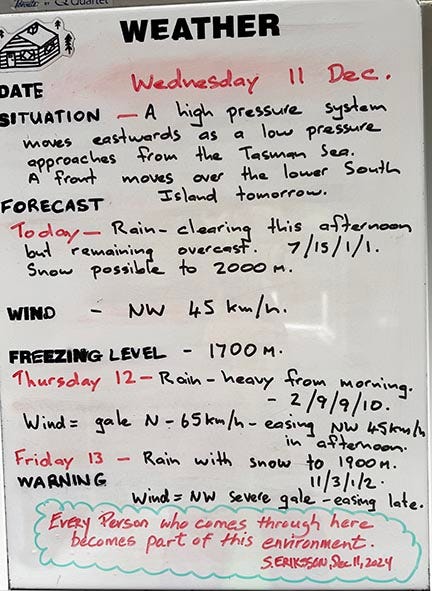 Quartet
WEATHER
DATE Wednesday 11 Dec.
SITUATION - A high pressure system
moves eastwards as a low pressure
approaches from the Tasman Sea.
A front moves over the lower South
Island tomorrow.
FORECAST
Today - Rain - clearing this afternoon
but remaining overcast. 7/15/1/1.
Snow possible to 2000 M.
WIND - NW 45 km/h.
FREEZING LEVEL - 1700 M.
Thursday 12 - Rain - heavy from morning.
- 2/9/9/10.
Wind = gale N - 65km/h - easing NW 45km/h
in afternoon.
Friday 13 - Rain with snow to 1900M.
WARNING 11/3/1/2.
Wind = NW severe gale - easing late.
Every Person who comes through here
becomes part of this environment.
S. ERIKSSON, Dec 11, 2024